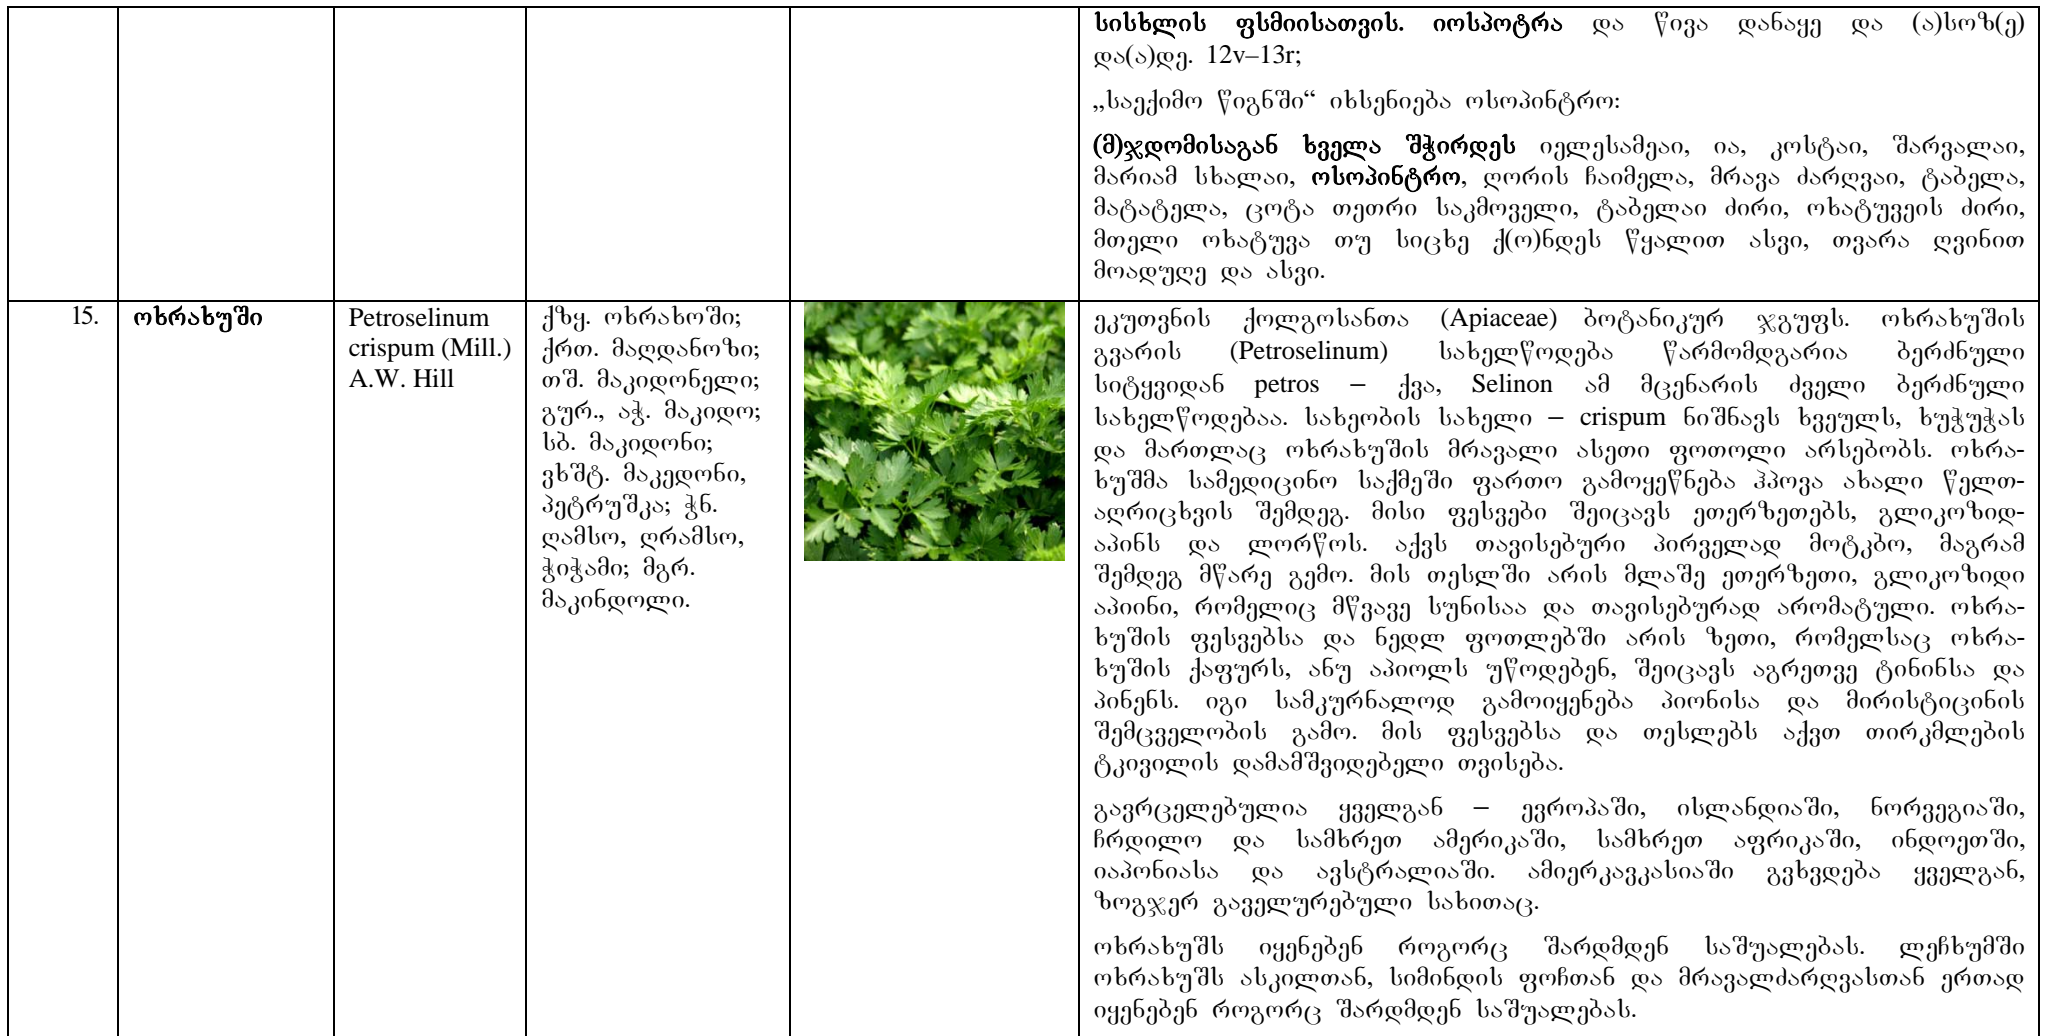 სისხლის ფსმიისათვის. იოსპოტრა და წივა დანაყე და (ა)სოზ(ე)
და(ა)დე. 12v–13r;
„საექიმო წიგნში“ იხსენიება ოსოპინტრო:
(მ)ჯდომისაგან ხველა შჭირდეს იელესამეაი, ია, კოსტაი, შარვალაი,
მარიამ სხალაი, ოსოპინტრო, ღორის ჩაიმელა, მრავა ძარღვაი, ტაბელა,
მატატელა, ცოტა თეთრი საკმოველი, ტაბელაი ძირი, ოხატუვეის ძირი,
მთელი ოხატუვა თუ სიცხე ქ(ო)ნდეს წყალით ასვი, თვარა ღვინით
მოადუღე და ასვი.
15.
ოხრახუში
Petroselinum
crispum (Mill.)
A.W. Hill
ქზყ. ოხრახოში;
ქრთ. მაღდანოზი;
თშ. მაკიდონელი;
გურ., აჭ. მაკიდო;
სბ. მაკიდონი;
ვხშტ. მაკედონი,
პეტრუშკა; ჭნ.
ღამსო, ღრამსო,
ჭიჭამი; მგრ.
მაკინდოლი.
ეკუთვნის ქოლგოსანთა (Apiaceae) ბოტანიკურ ჯგუფს. ოხრახუშის
გვარის (Petroselinum) სახელწოდება წარმომდგარია ბერძნული
სიტყვიდან petros – ქვა, Selinon ამ მცენარის ძველი ბერძნული
სახელწოდებაა. სახეობის სახელი – crispum ნიშნავს ხვეულს, ხუჭუჭას
და მართლაც ოხრახუშის მრავალი ასეთი ფოთოლი არსებობს. ოხრა-
ხუშმა სამედიცინო საქმეში ფართო გამოყეწნება ჰპოვა ახალი წელთ-
აღრიცხვის შემდეგ. მისი ფესვები შეიცავს ეთერზეთებს, გლიკოზიდ-
აპინს და ლორწოს. აქვს თავისებური პირველად მოტკბო, მაგრამ
შემდეგ მწარე გემო. მის თესლში არის მლაშე ეთერზეთი, გლიკოზიდი
აპიინი, რომელიც მწვავე სუნისაა და თავისებურად არომატული. ოხრა-
ხუშის ფესვებსა და ნედლ ფოთლებში არის ზეთი, რომელსაც ოხრა-
ხუშის ქაფურს, ანუ აპიოლს უწოდებენ, შეიცავს აგრეთვე ტინინსა და
პინენს. იგი სამკურნალოდ გამოიყენება პიონისა და მირისტიცინის
შემცველობის გამო. მის ფესვებსა და თესლებს აქვთ თირკმლების
ტკივილის დამამშვიდებელი თვისება.
გავრცელებულია ყველგან – ევროპაში, ისლანდიაში, ნორვეგიაში,
ჩრდილო და სამხრეთ ამერიკაში, სამხრეთ აფრიკაში, ინდოეთში,
იაპონიასა და ავსტრალიაში. ამიერკავკასიაში გვხვდება ყველგან,
ზოგჯერ გაველურებული სახითაც.
ოხრახუშს იყენებენ როგორც შარდმდენ საშუალებას. ლეჩხუმში
ოხრახუშს ასკილთან, სიმინდის ფოჩთან და მრავალძარღვასთან ერთად
იყენებენ როგორც შარდმდენ საშუალებას.